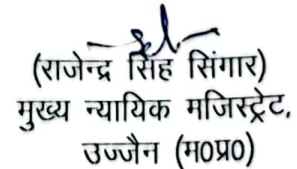 (राजेन्द्र सिंह सिंगार)
मुख्य न्यायिक मजिस्ट्रेट,
उज्जैन (म0प्र0)